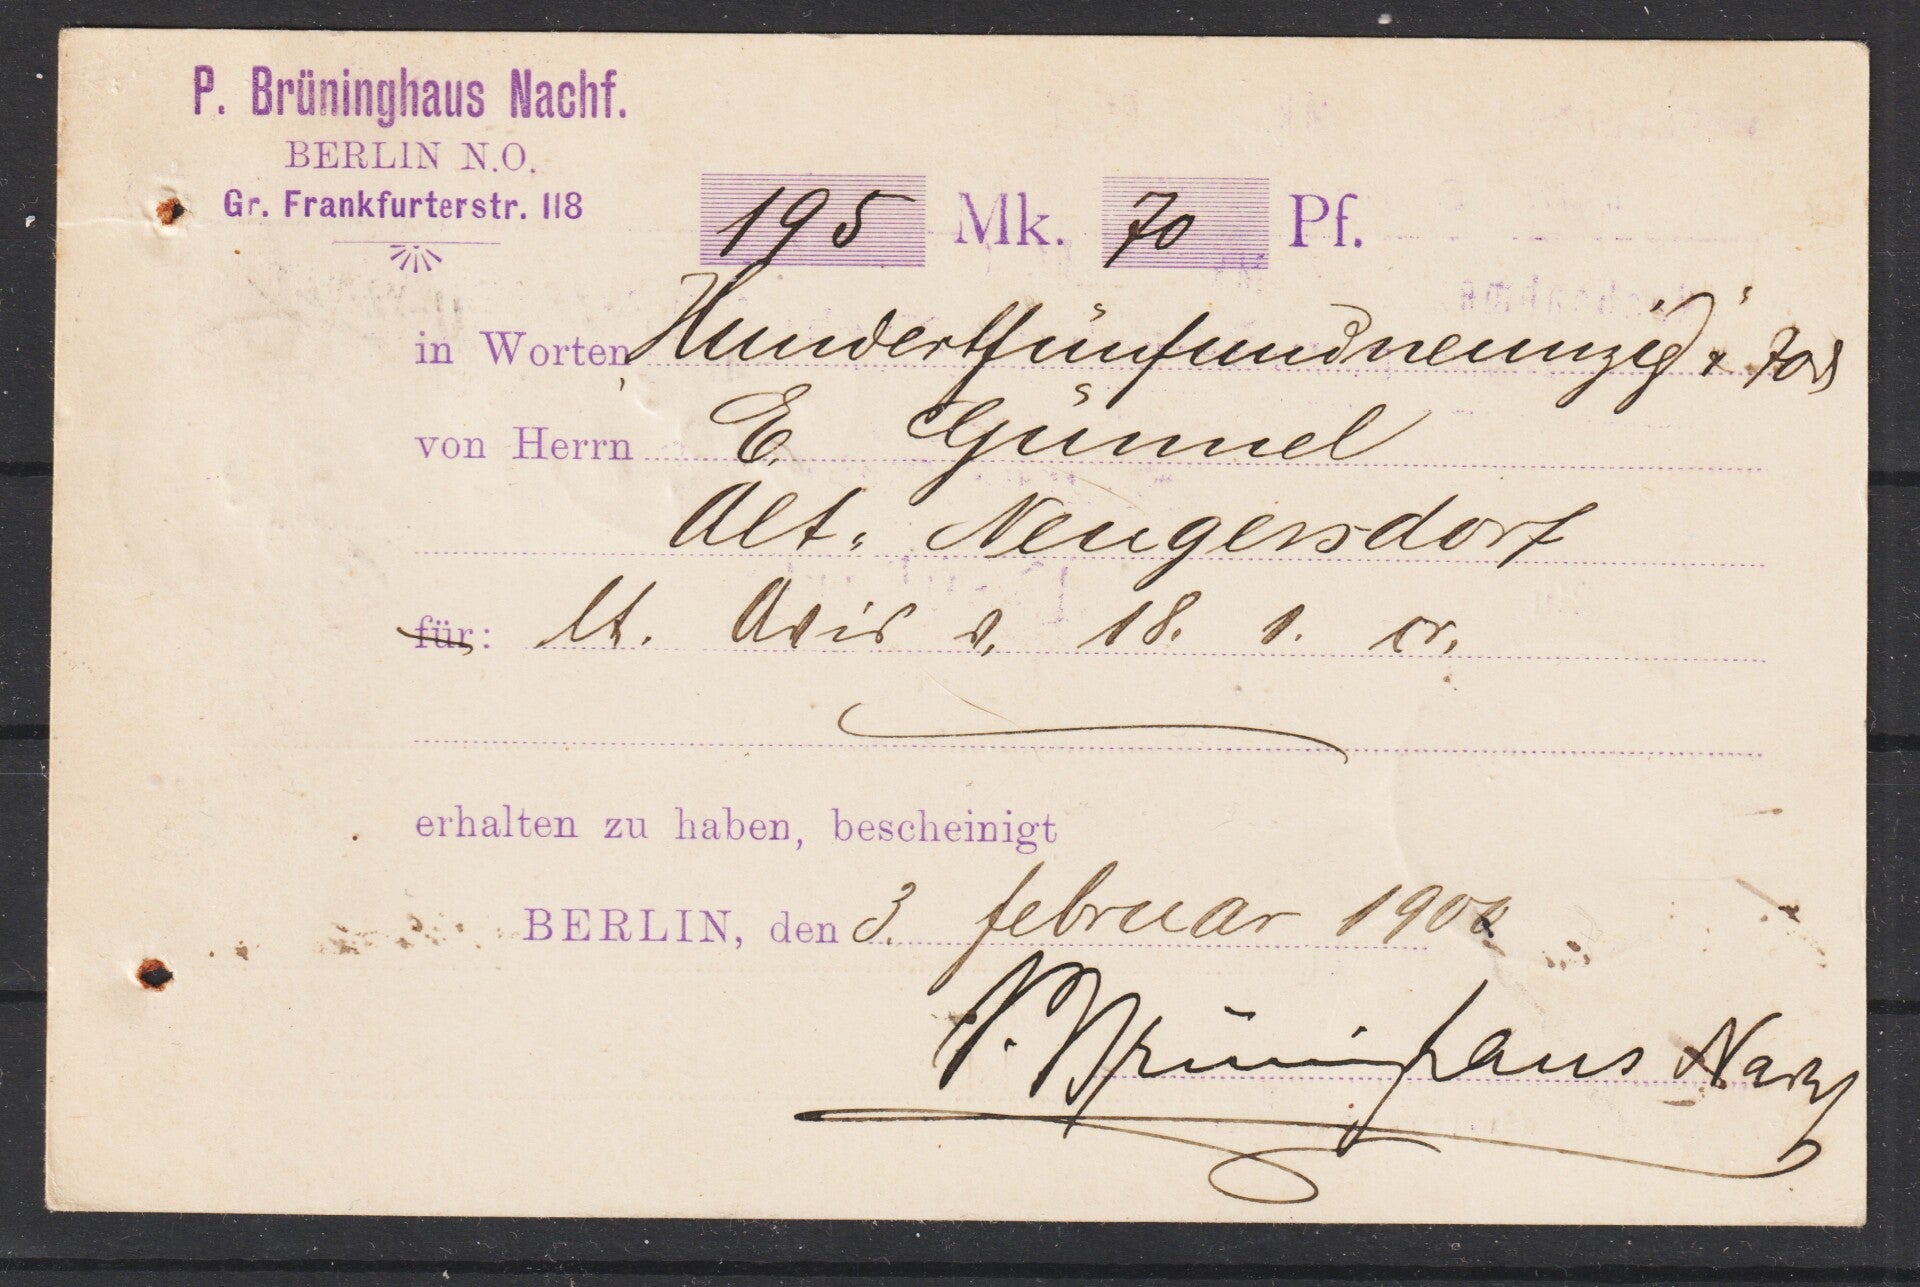 P. Brüninghaus Nachf.
BERLIN N.O.
Gr. Frankfurterstr. 118
195 Mk. 70 Pf.
in Worten Hundertfünfundneunzig + 70 ₰
von Herrn E. Günnel
Alt-Neugersdorf
für: lt. Avis v. 18. 1. cr.
erhalten zu haben, bescheinigt
BERLIN, den 3. Februar
P. Brüninghaus Nachf